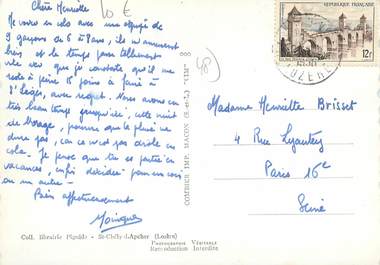 10 €
Chère Henriette
Je viens en colo avec une équipe de
9 garçons de 6 à 8 ans, ils m'amusent
bien et le temps passe tellement
vite que je constate qu'il me
reste à peine 15 jours à faire à
St Léger, avec regret. Nous avons eu
très beau temps jusqu'ici, cette nuit
de l'orage, pourvu que la pluie ne
dure pas, car ce n'est pas drôle en
colo. Je pense que tu es partie en
vacances, enfin décidée pour un coin
ou un autre -
Bien affectueusement
Monique
(48)
COMBIER IMP. MACON (S.-et-L.) "CIM"
REPUBLIQUE FRANÇAISE
12F
LOZERE
Madame Henriette Brisset
4 Rue Lyautey
Paris 16e
Seine
Coll. librairie Pignide - St-Chély-d'Apcher (Lozère)
PHOTOGRAPHIE VÉRITABLE
Reproduction Interdite